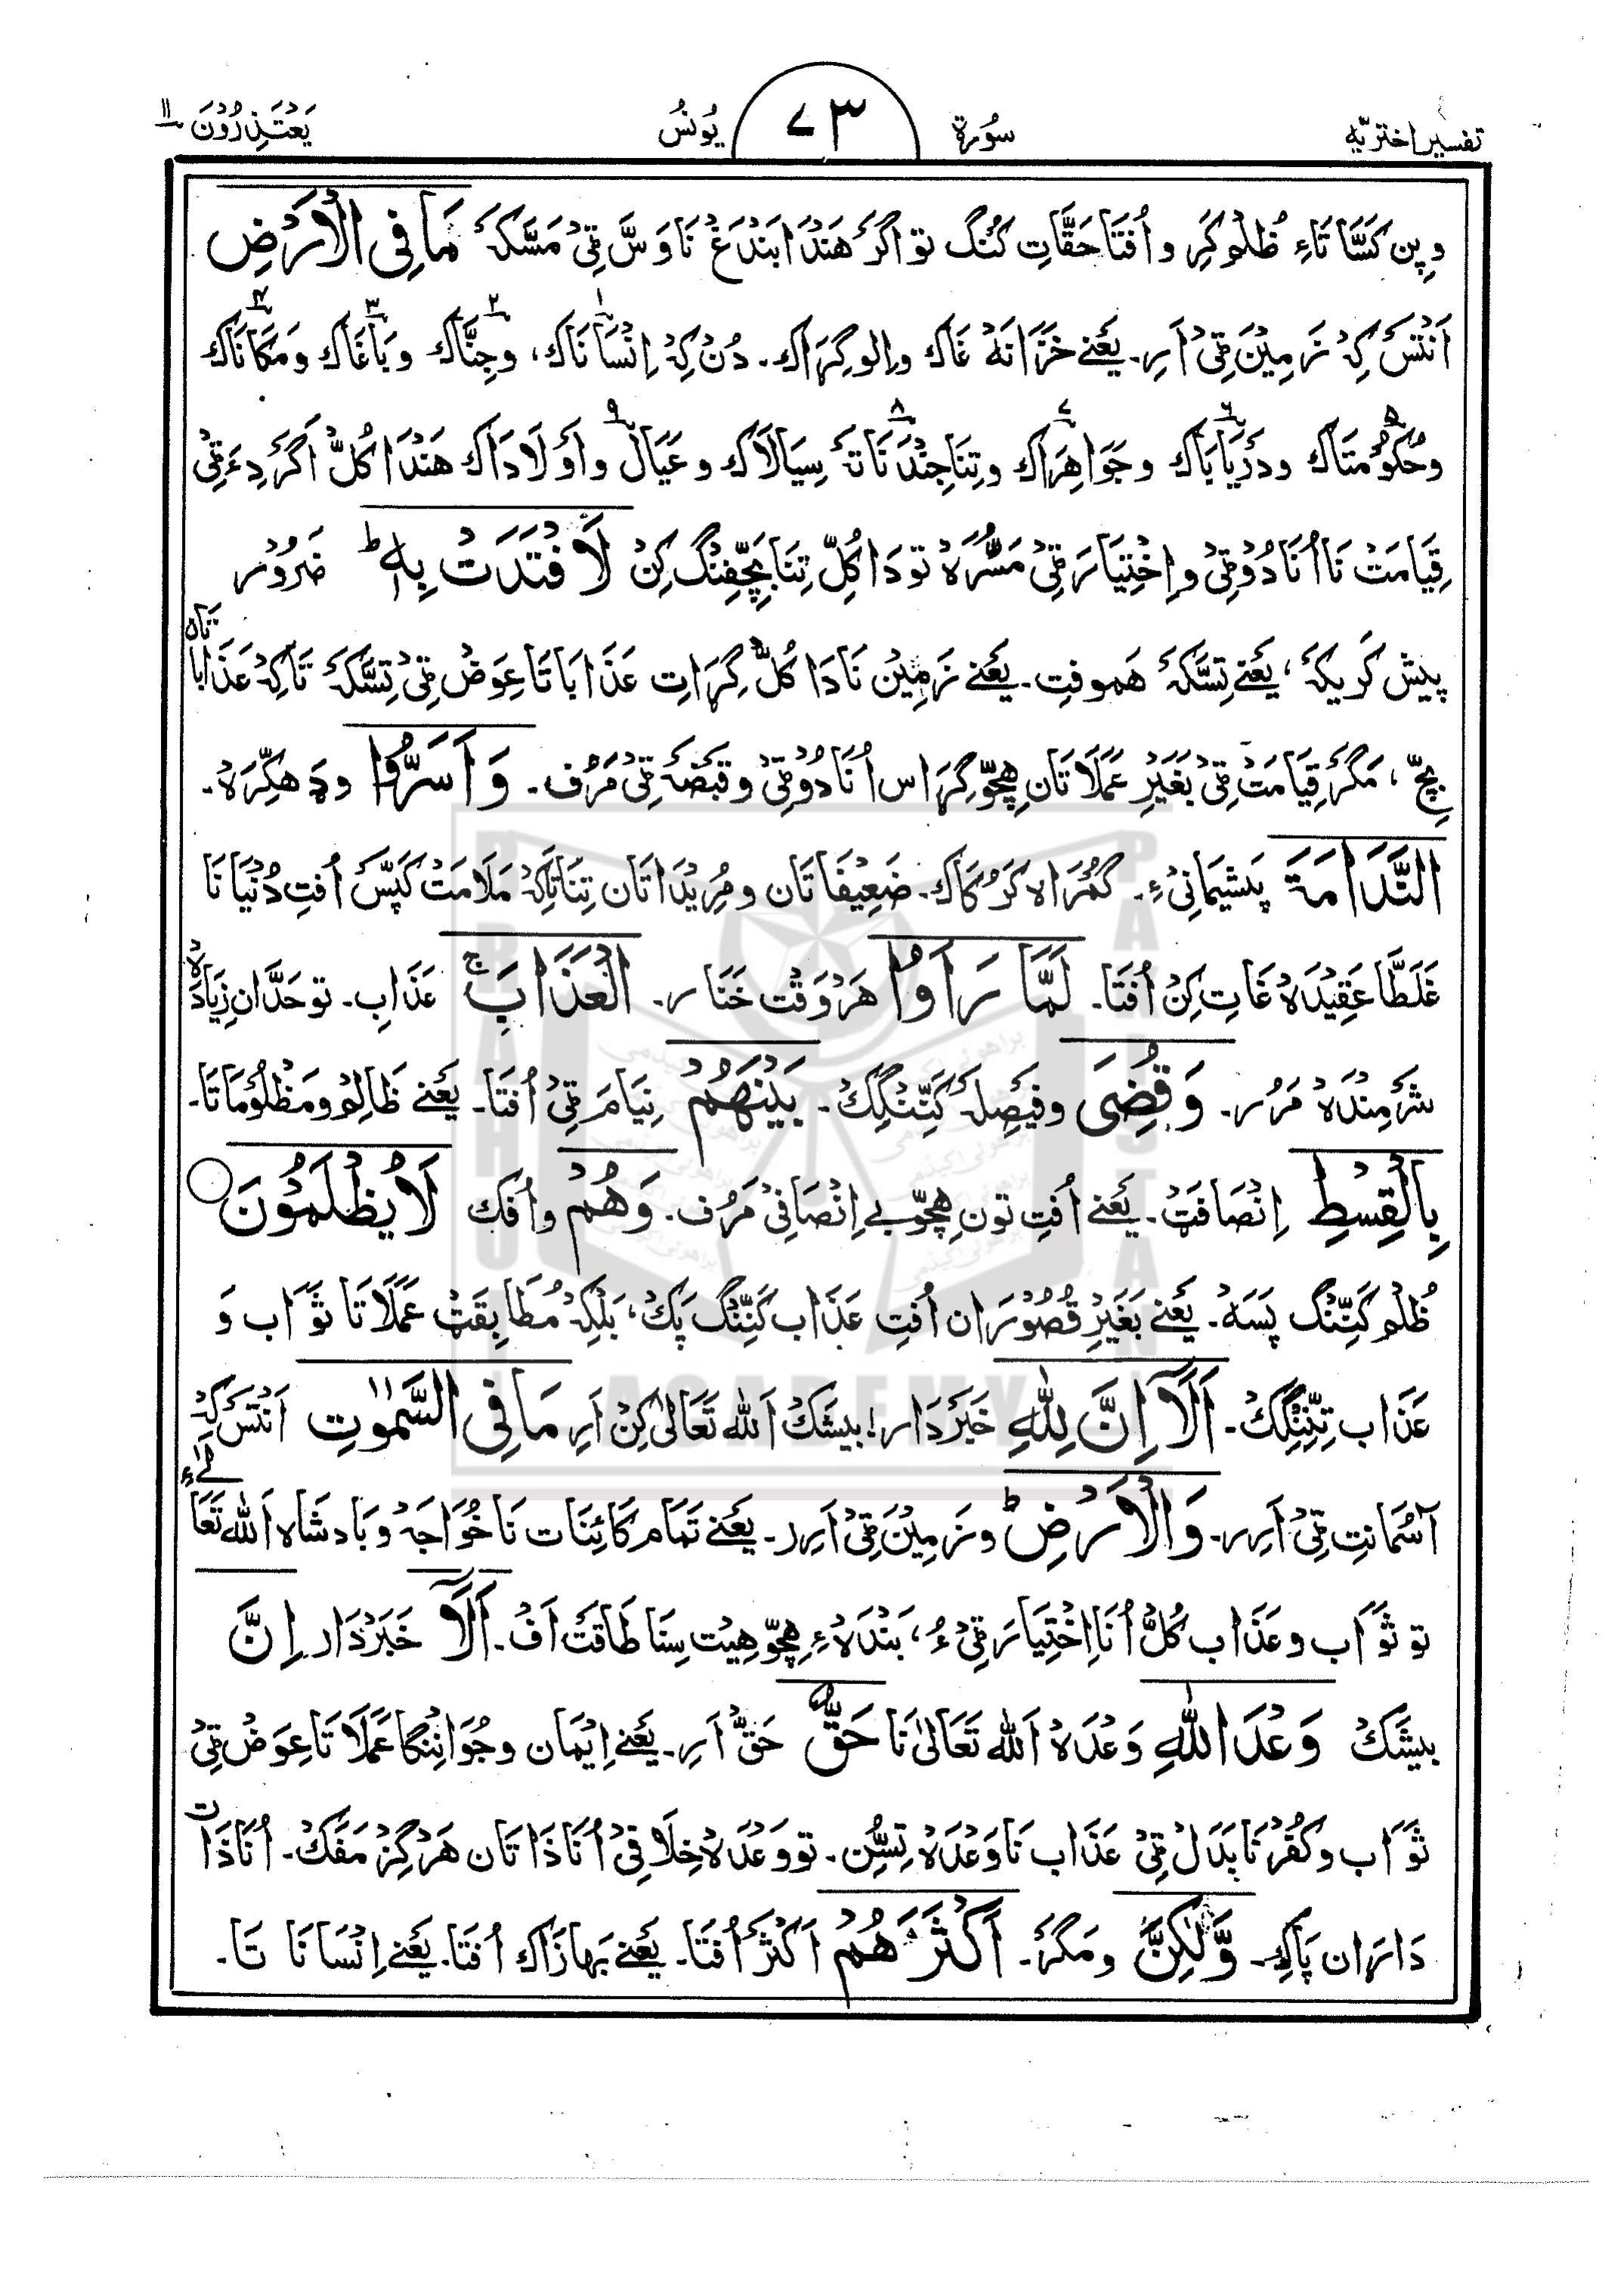 تفسیر اختریّه
سُورة
۷۳
یُونسُ
یَعْتَذِرُوْنَ ۱۱
وپِن کَسَّا تَاءِ ظُلم کرِ و اُفتَا حَقَّاتِ کُنگ تو اگرَ هَندَا بَندَغ نَا وَسَّ ٹِیْ مَسَّکَہ مَا فِی الْاَرْضِ
اَنْتَسْ کِہْ زَمِیْن ٹِیْ اَرِ۔ یَعْنے خَزَانَہ غَاک و اِلو گِرَاک۔ دُنْ کِہْ اِنْسَا نَاک، وجِنَّاک وبَاغَاک ومَکَانَاک
وحُکُوْمتَاک ودَرْیَابَاک وجَوَاهِرَاک وتِنَا جِنْدَ نَاتَہ سِیَالَاک وعَیَال واَوْلَادَاک هَندَا کُلّ اَگرَ دِءَ ٹِیْ
قِیَامَتْ نَا اُنَا دُوْٹِیْ واِخْتِیَارَ ٹِیْ مَسُّرَہ تودَا کُلِّ تِنَا بَچِّفِنْگ کِنْ لَا فْتَدَتْ بِهٖ ط ضَرُوْر
پیش کریکہَ، یَعْنے تِسَّکہَ هَموفتِ۔ یَعْنے زَمِیْن نَا دَا کُلّ گِرَاتِ عَذَابَا تَا عِوَضْ ٹِیْ تِسَّکہَ تَاکِہْ عَذَابَا تَان
بِچّ، مَگرَ قِیَامَتْ ٹِیْ بَغَیْرِ عَمَلَا تَان هِچّو گِرَا س اُنَا دُوْٹِیْ و قَبْضَہ ٹِیْ مَرُف۔ وَ اَسَرُّوا ودَهکِّرَہ۔
النَّدَامَةَ پَشِیْمَانِیْءِ۔ گُمْرَاہ کَرُکَاک۔ ضَعِیْفَا تَان و مُرِیْدَاتَان تِنَا تَاکِہْ مَلَامَتْ کَپَّسَ اُفتِ دُنْیَا نَا
غَلَطَّا عَقِیْدَہ غَاتِ کِنْ اُفتَا۔ لَمَّا رَاَوُا هَرْوَقْت خَنَار۔ الْعَذَابَ ج عَذَابِ۔ تو حَدَّان زِیَادَہ
شَرْمِنْدَہ مَرُر۔ وَقُضِیَ و فَیْصِلہَ کَنِّنْگِکْ۔ بَیْنَهُمْ نِیَامَ ٹِیْ اُفتَا۔ یَعْنے ظَالِم و مَظْلُوْمَاتَا۔
بِالْقِسْطِ اِنْصَافَتْ۔ یَعْنے اُفتِ تون هِچّو بے اِنْصَافِیْ مَرُف۔ وَهُمْ و اُفک لَا یُظْلَمُوْنَ
ظُلم کَنِّنْگ پَسَہ۔ یَعْنے بَغَیْرِ قُصُوْرَان اُفتِ عَذَاب کَنِّنْگ پَکْ، بَلکِہْ مُطَابِقَتْ عَمَلَا تَا ثَوَاب وَ
عَذَاب تِنِّنْگِکْ۔ اَلَآ اِنَّ لِلّٰهِ خَبَرْدَار! بیشَکْ اَللہ تَعَالیٰ کِنْ اَرِ مَا فِی السَّمٰوٰتِ اَنْتَسْ کِہْ
آسْمَانتِ ٹِیْ اَرِر۔ وَ الْاَرْضِ ط و زَمِیْن ٹِیْ اَرِر۔ یَعْنے تَمَام کَائِنَات نَا خُوَاجَہ وبَادشَاہ اَللہ تَعَالیٰ ءِ
تو ثَوَاب و عَذَاب کُلّ اُنَا اِخْتِیَارَ ٹِیْ ءُ، بَنْدَہ ءِ هِچّو هِیْت سِنَا طَاقَتْ اَفْ۔ اَلَآ خَبَرْدَار اِنَّ
بیشَکْ وَعْدَ اللّٰهِ وَعْدَہ اَللہ تَعَالیٰ نَا حَقٌّ حَقّ اَرِ۔ یَعْنے اِیْمَان و جُوَانِنگا عَمَلَا تَا عِوَضْ ٹِیْ
ثَوَاب و کُفْر نَا بَدَلْ ٹِیْ عَذَاب نَا وَعْدَہ تِسُّن۔ تو وعْدَہ خِلَافِیْ اُنَا ذَاتَان هَرْگِزْ مَفَکْ۔ اُنَا ذَات
دَارَان پَاکِ۔ وَّلٰکِنَّ ومَگرَ۔ اَکْثَرَهُمْ اَکْثَرَ اُفتَا۔ یَعْنے بَهازَاک اُفتَا۔ یَعْنے اِنْسَانَا تَا۔
BRAHUI ACADEMY PAKISTAN